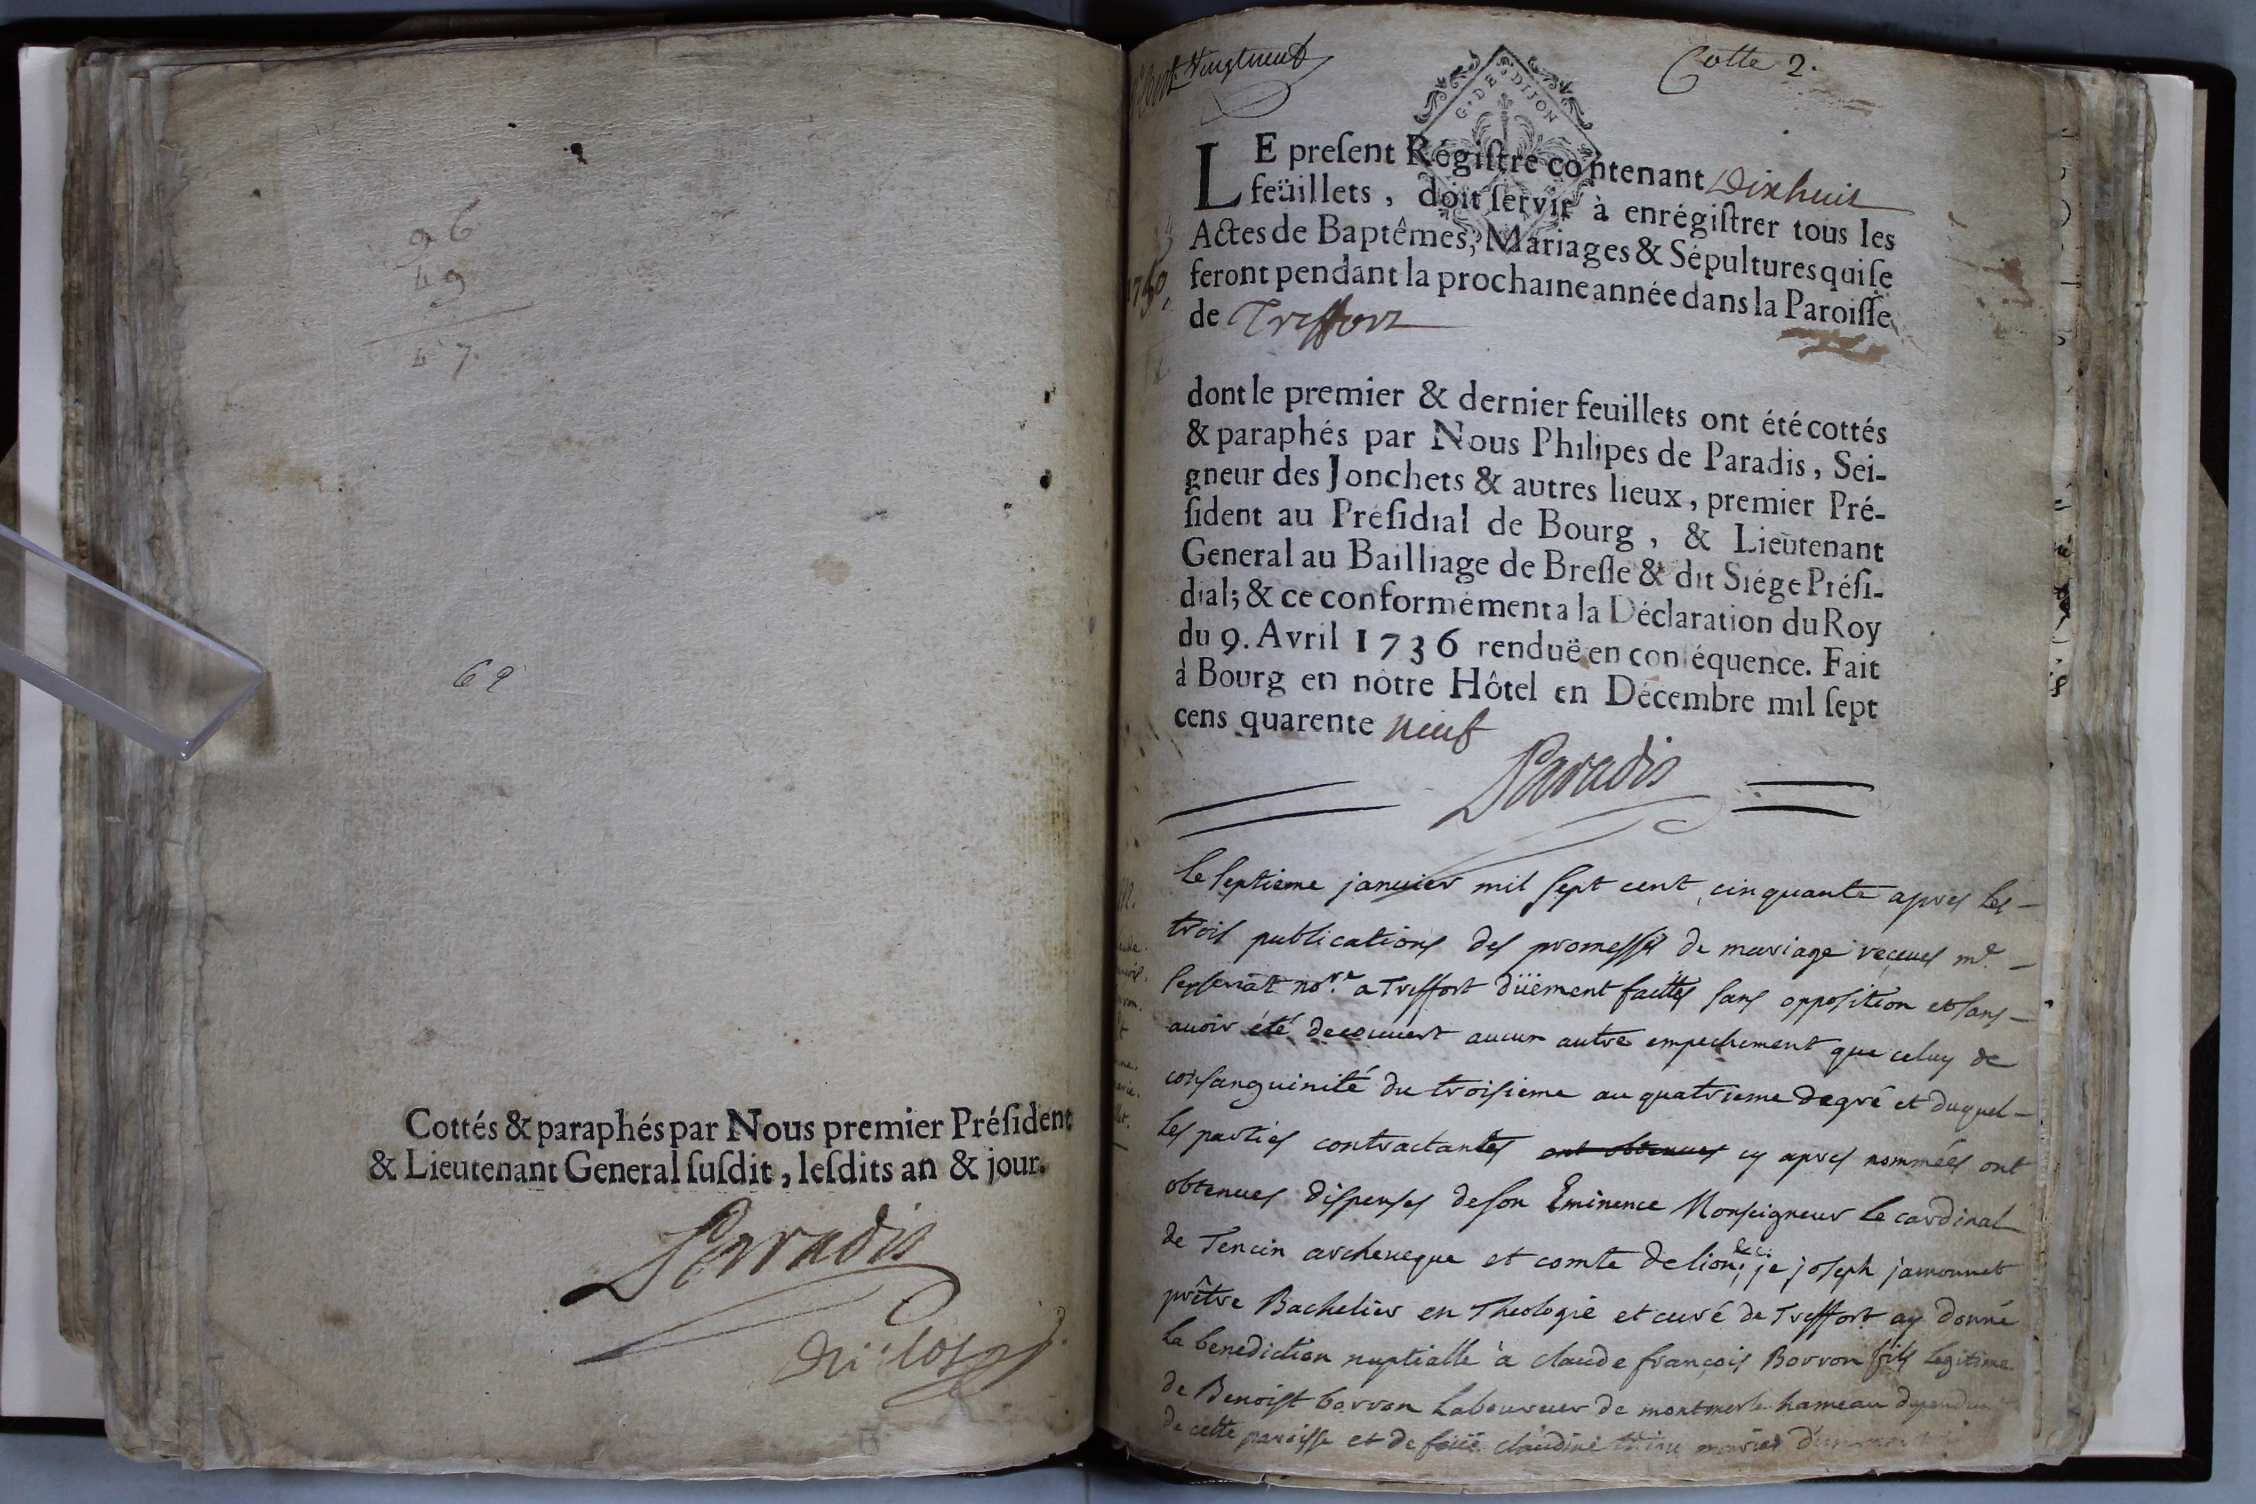 96
49
47.
69
Cottés & paraphés par Nous premier Préſident
& Lieutenant General ſuſdit, leſdits an & jour.
Paradis
Cotte 2.
G. DE. DIJON
LE preſent Régiſtre contenant Dixhuit
feüillets, doit ſervir à enrégiſtrer tous les
Actes de Baptêmes, Mariages & Sépultures qui ſe
feront pendant la prochaine année dans la Paroiſſe
de Treffort
1750,
dont le premier & dernier feuillets ont été cottés
& paraphés par Nous Philipes de Paradis, Sei-
gneur des Jonchets & autres lieux, premier Pré-
ſident au Préſidial de Bourg, & Lieutenant
General au Bailliage de Breſſe & dit Siége Préſi-
dial; & ce conformément a la Déclaration du Roy
du 9. Avril 1736 renduë en conſéquence. Fait
à Bourg en nôtre Hôtel en Décembre mil ſept
cens quarente neuf
Paradis
Le septieme janvier mil sept cent cinquante apres les
trois publications des promesses de mariage reçeues me.
nore. a Treffort düement faittes sans opposition et sans
avoir été decouvert aucun autre empechement que celuy de
consanguinité du troisieme au quatrieme degré et duquel
les parties contractantes ont obtenues cy apres nommées ont
obtenues dispenses de son Eminence Monseigneur le cardinal
de Tencin archeveque et comte de lion; &c. je joseph jamonnet
prêtre Bachelier en Theologie et curé de Treffort ay donné
la benediction nuptialle à claude françois Borron fils legitime
de Benoist borron laboureur de montmerle hameau dependant
de cette paroisse et de feüe claudine mariés